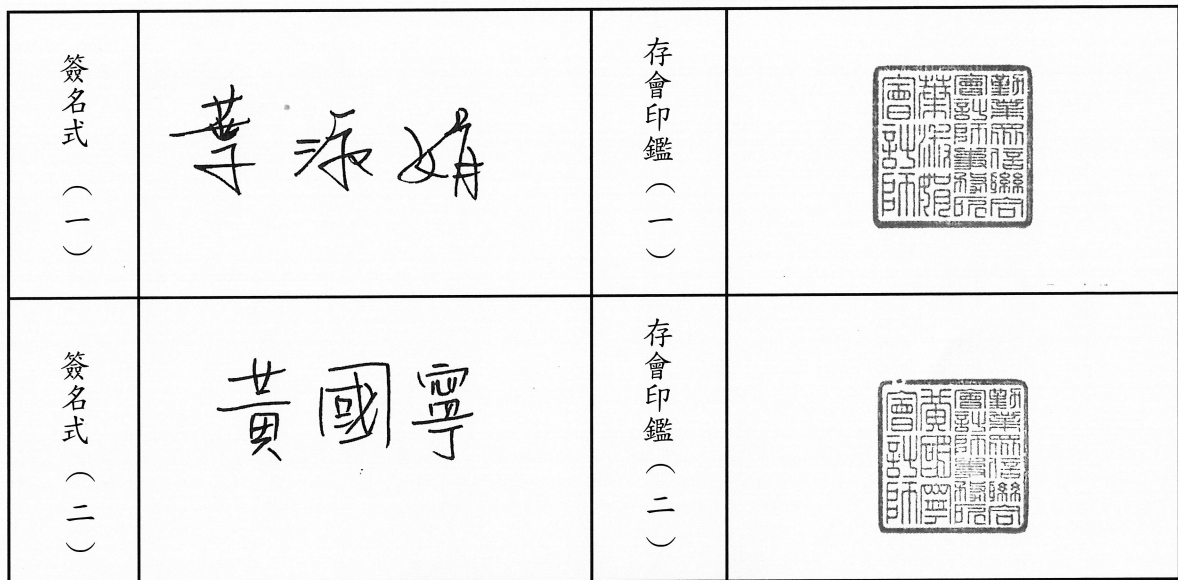 簽名式（一）
葉淑娟
存會印鑑（一）
勤業眾信聯合
會計師事務所
葉淑娟
會計師
簽名式（二）
黃國寧
存會印鑑（二）
勤業眾信聯合
會計師事務所
黃國寧
會計師